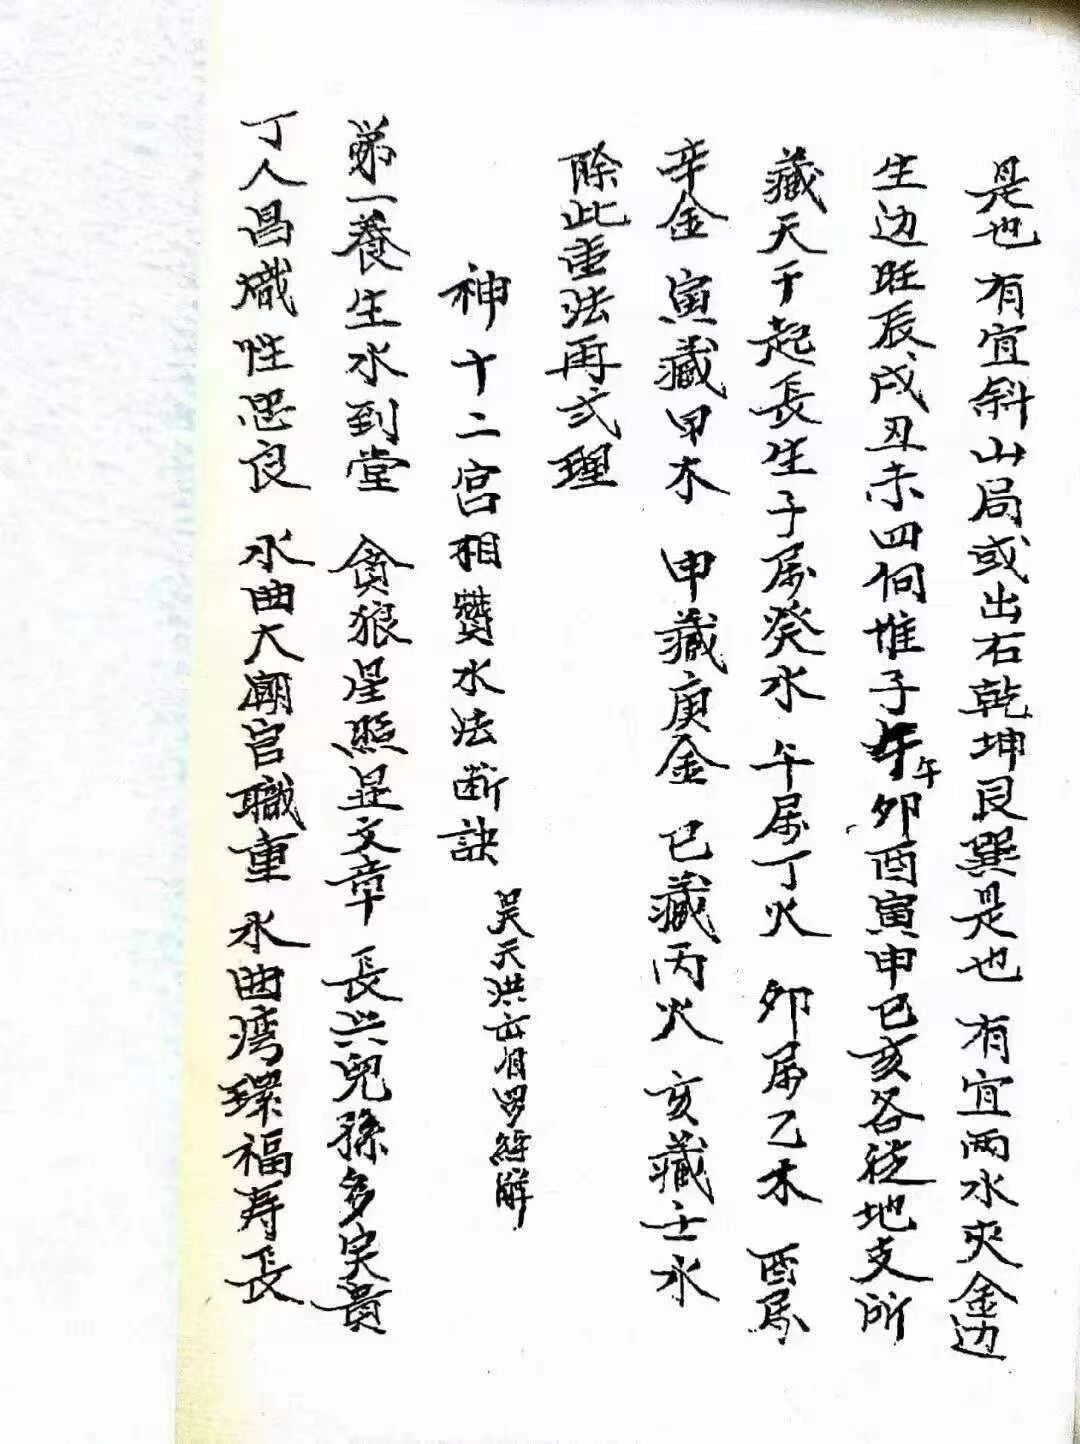 是也 有宜斜山局或出右乾坤艮巽是也 有宜兩水夾金边
生边旺辰戌丑未四 惟子午卯酉寅申巳亥各從地支所
藏天干起長生子属癸水 午属丁火 卯属乙木 酉属
辛金 寅藏甲木 申藏庚金 巳藏丙火 亥藏壬水
除此重法再弍理
神十二宮相贊水法断訣
吴天洪 罗經解
第一養生水到堂 貪狼星照显文章 長 兒孫多 貴
丁人昌熾性忠良 水曲大潮官職重 水曲湾環福寿長